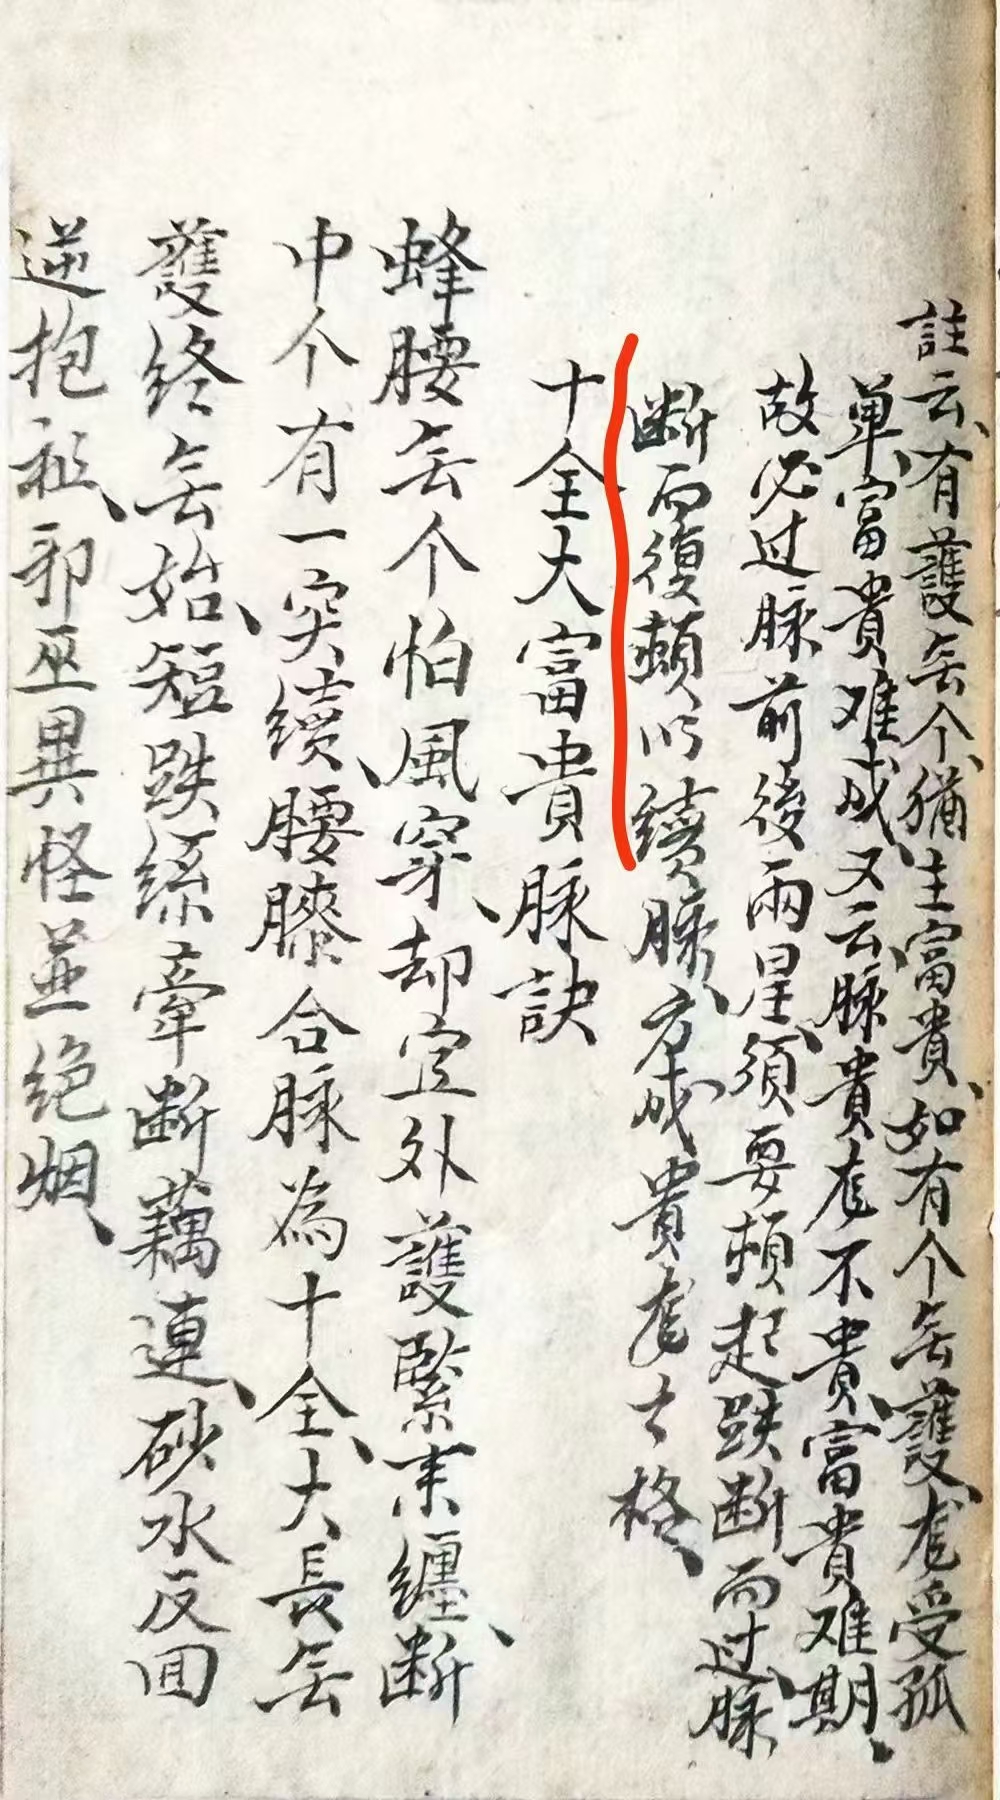 註云、有護無个、猶主富貴、如有个無護、定受孤
單、富貴难成、又云、脉貴定不貴、富貴难期、
故必过脉前後兩星、須要頓起跌断而过脉
断而復頓以續脉、方成貴定之格、
十全大富貴脉訣
蜂腰無个怕風穿、却宜外護緊来纏、断
中个有一突續、腰膝合脉為十全、大長無
護終無始、短跌絲牽断藕連、砂水反回
逆抱祖、邪巫異怪並絕烟、